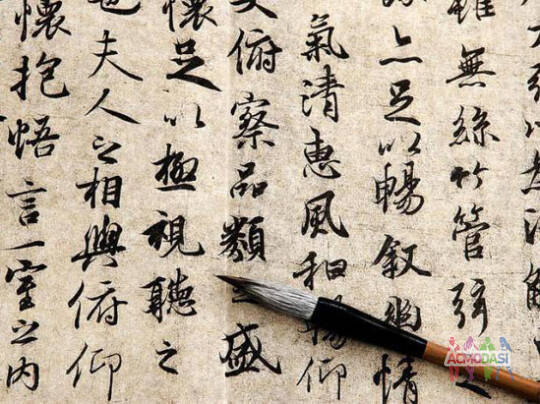 以為流觴
雖無絲竹管弦之
亦足以暢敘幽情
氣清惠風和暢仰
大俯察品類之盛
懷足以極視聽之
也夫人之相與俯仰
懷抱悟言一室之內
ACMODASI